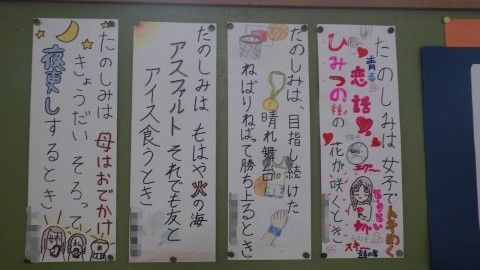 たのしみは女子でトキめく
青春
恋話
ひみつの種の
花が咲くとき
たのしみは、目指し続けた
晴れ舞台
ねばりねばって勝ち上るとき
たのしみは もはや火の海
アスファルト それでも友と
アイス食うとき
たのしみは 母はおでかけ
きょうだいそろって
夜更しするとき